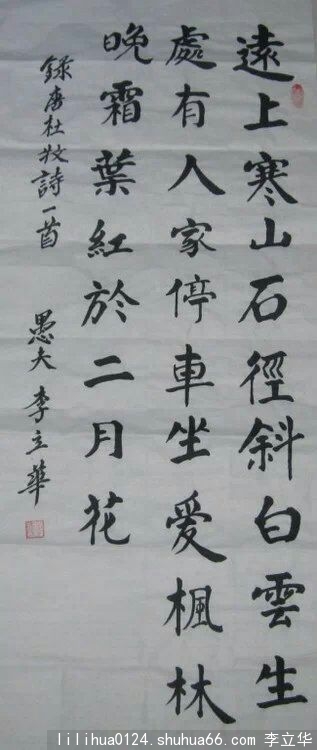 遠上寒山石徑斜白雲生
處有人家停車坐愛楓林
晚霜葉紅於二月花
錄唐杜牧詩一首
愚夫李立華
lilihua0124.shuhua66.com 李立华